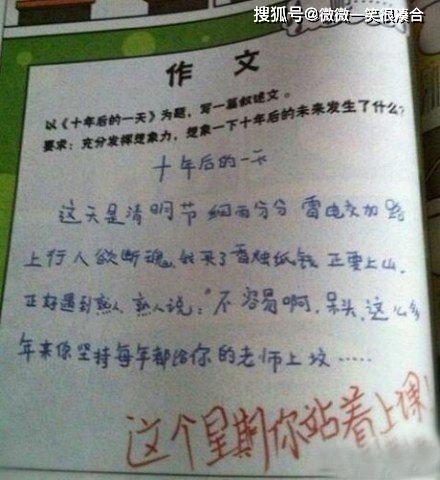 搜狐号@微微一笑很凑合
作 文
以《十年后的一天》为题,写一篇叙述文。
要求:充分发挥想象力,想象一下十年后的未来发生了什么?
十年后的一天
这天是清明节 细雨分分 雷电交加 路
上行人欲断魂,我买了香烛纸钱 正要上山,
正好遇到熟人,熟人说:“不容易啊,呆头,这么多
年来你坚持每年都给你的老师上坟……
这个星期你站着上课!